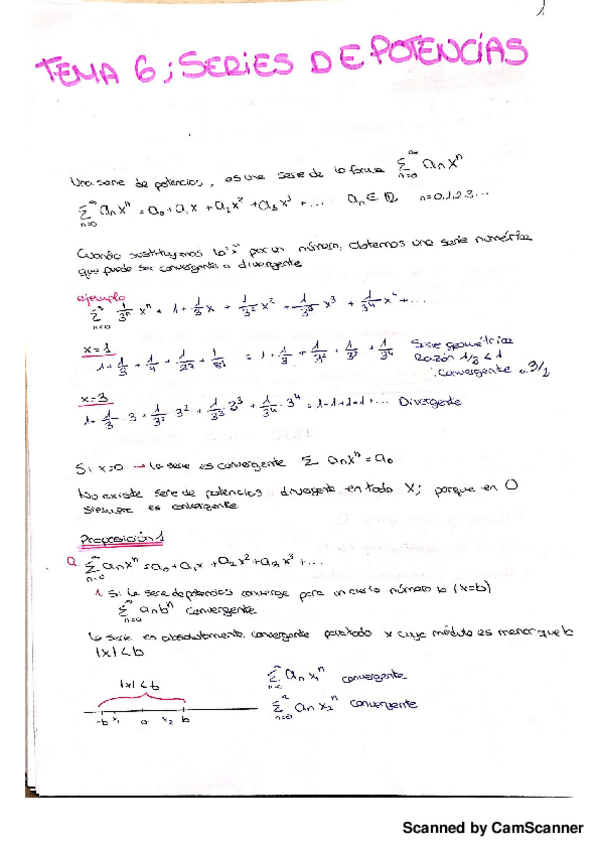 TEMA 6; SERIES DE POTENCIAS
Una serie de potencias, es una serie de la forma ∞ Σ n=0 aₙxⁿ
∞ Σ n=0 aₙxⁿ = a₀ + a₁x + a₂x² + a₃x³ + ... aₙ ∈ n=0,1,2,3...
Cuando sustituymos la "x" por un número, obtemos una serie numérica
que puede ser convergente o divergente
ejemplo
∞ Σ n=0 1/3ⁿ xⁿ = 1 + 1/3 x + 1/3² x² + 1/3³ x³ + 1/3⁴ x⁴ + ...
x=1
= 1 + 1/3 + 1/3² + 1/3³ + 1/3⁴ Serie geométrica
Razón 1/3 < 1
convergente a 3/2
x=3
1 + 1/3 · 3 + 1/3² 3² + 1/3³ 3³ + 1/3⁴ · 3⁴ = 1+1+1+1+... Divergente
Si x=0 → la serie es convergente Σ aₙxⁿ = a₀
No existe serie de potencias divergente en todo X; porque en 0
siempre es convergente
Proposición 1
a. ∞ Σ n=0 aₙxⁿ = a₀ + a₁x + a₂x² + a₃x³ + ...
1. Si la serie de potencias converge para un cierto número b (x=b)
∞ Σ n=0 aₙbⁿ convergente
La serie es absolutamente convergente para todo x cuyo módulo es menor que b
|x| < b
|x| < b
∞ Σ n=0 aₙ x₁ⁿ convergente
∞ Σ n=0 aₙ x₂ⁿ convergente
-b x₁ 0 x₂ b
Scanned by CamScanner